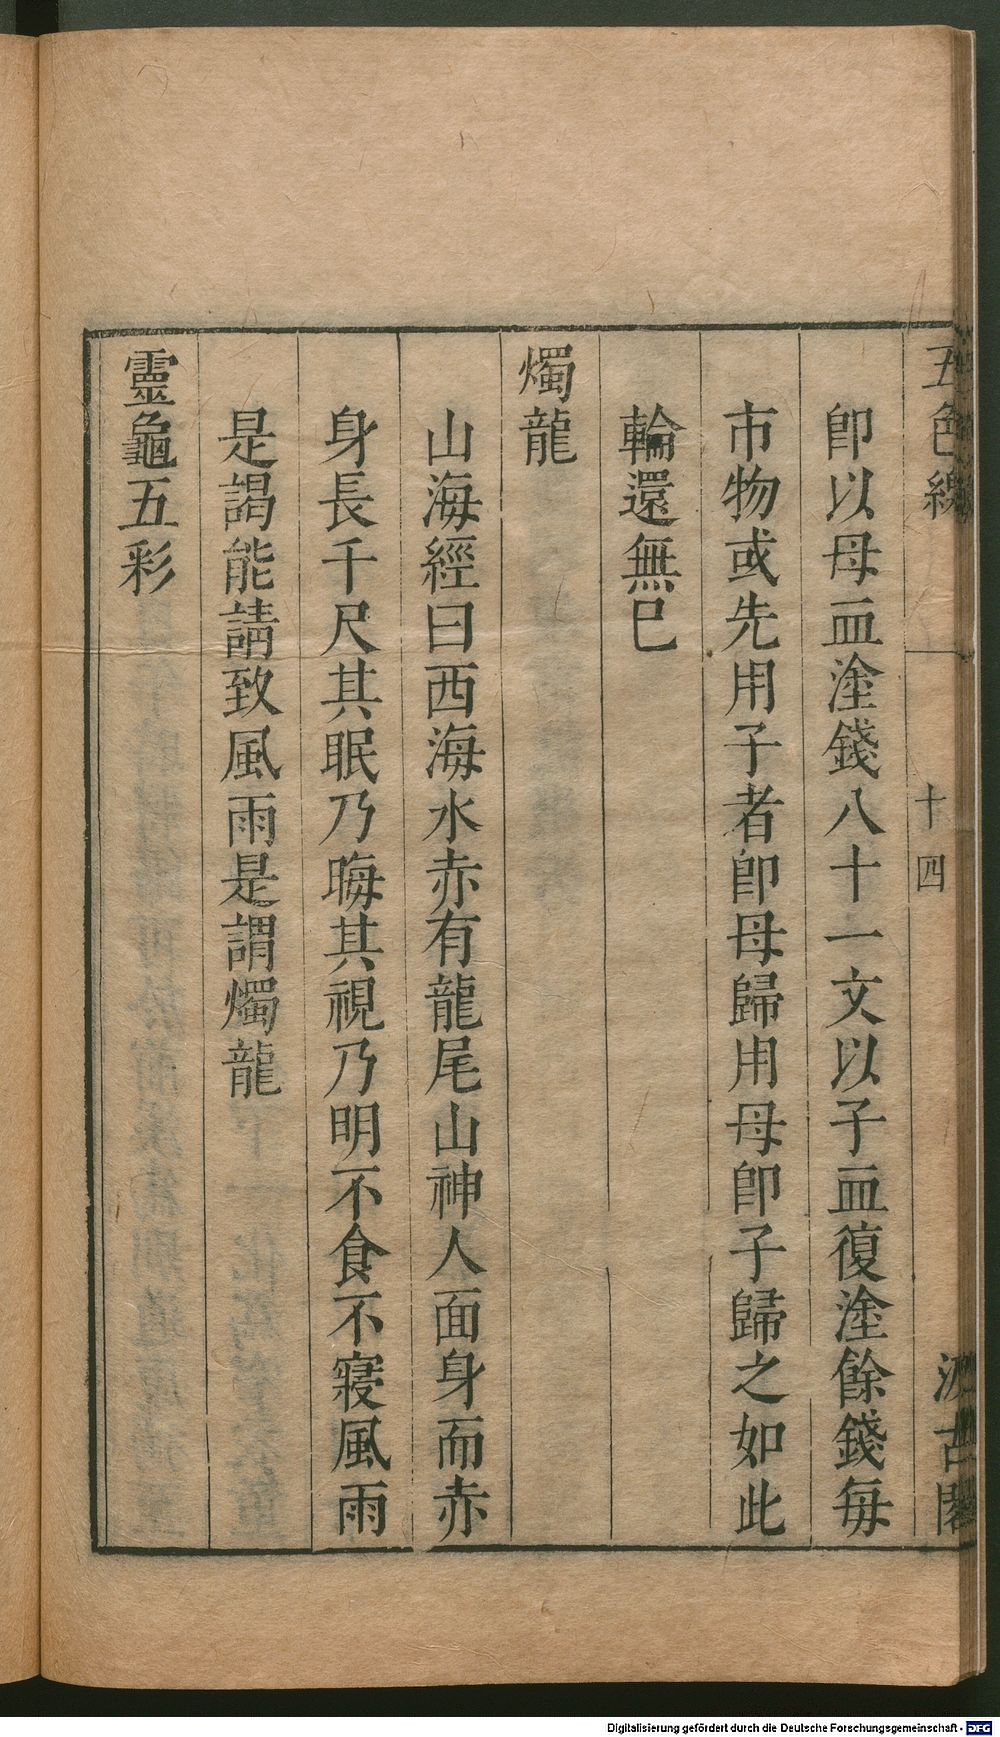 五色線
十四
汲古閣
卽以母血塗錢八十一文以子血復塗餘錢每
市物或先用子者卽母歸用母卽子歸之如此
輪還無已
燭龍
山海經曰西海水赤有龍尾山神人面身而赤
身長千尺其眠乃晦其視乃明不食不寢風雨
是謁能請致風雨是謂燭龍
靈龜五彩
Digitalisierung gefördert durch die Deutsche Forschungsgemeinschaft - DFG